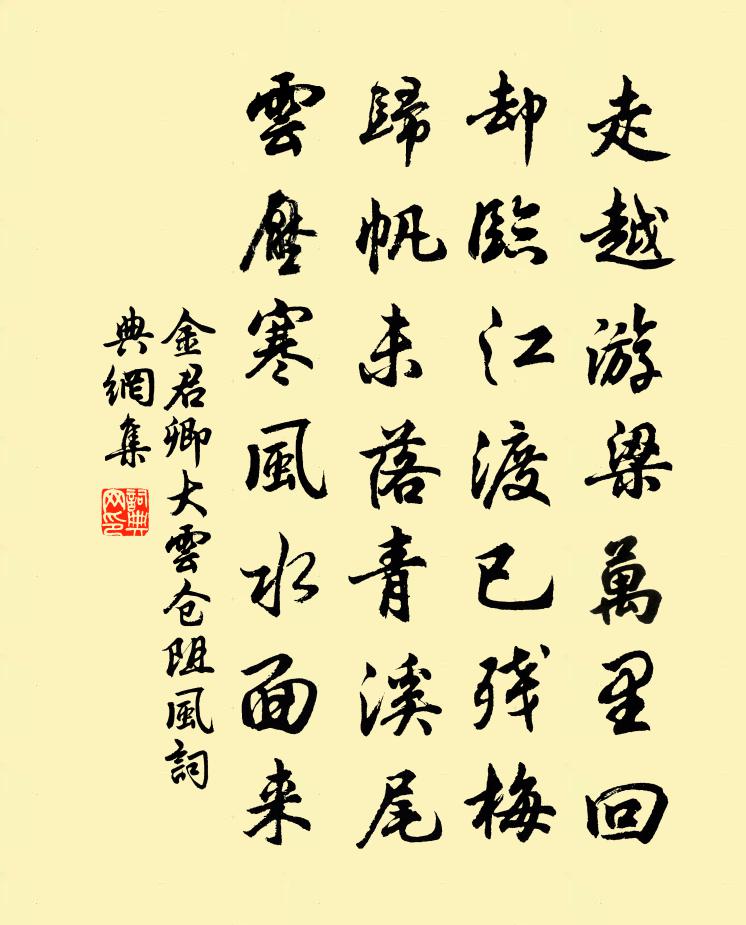 走越游梁萬里回
却臨江渡已残梅
歸帆未落青溪尾
雲壓寒風水面来
金君卿大雲仓阻風詞
典網集
詞典
网印